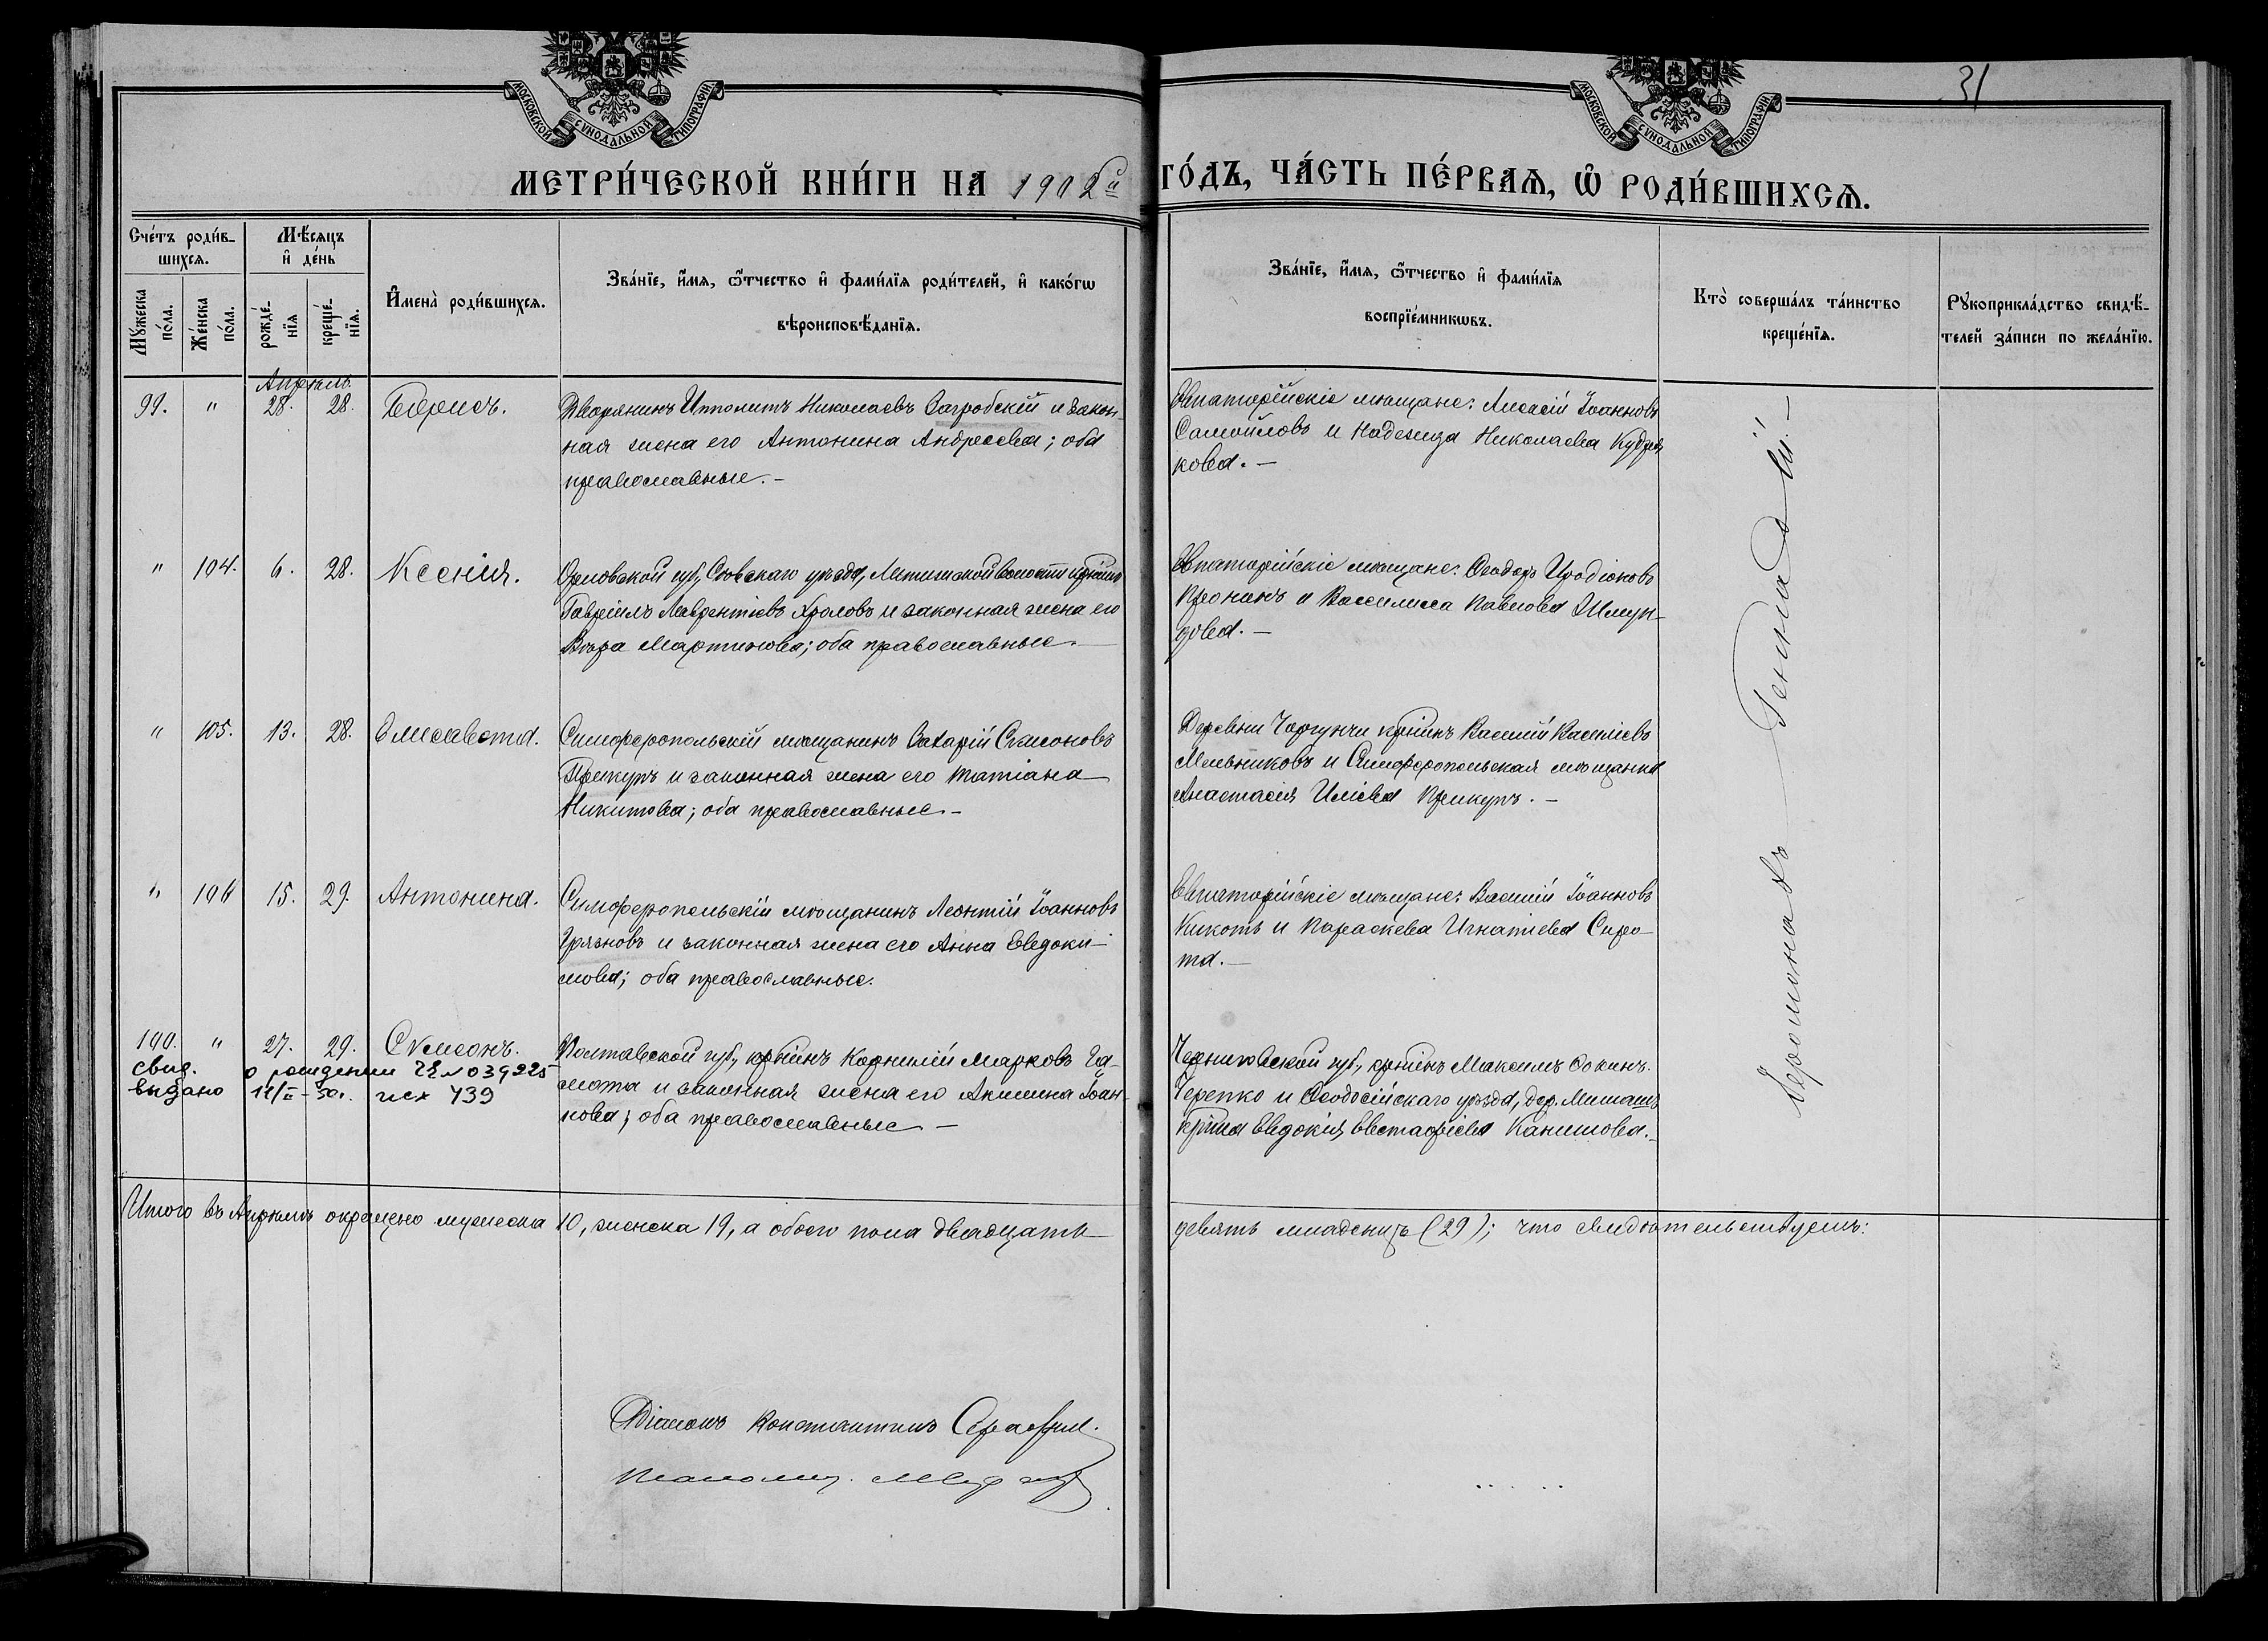 31
МОСКОВСКОЙ СѴНОДАЛЬНОЙ ТИПОГРАФІИ
МОСКОВСКОЙ СѴНОДАЛЬНОЙ ТИПОГРАФІИ
МЕТРИ́ЧЕСКОЙ КНИ́ГИ НА 1902й ГО́ДЪ, ЧА́СТЬ ПЕ́РВАѦ, Ѡ҆ РОДИ́ВШИХСѦ.
Сче́тъ роди́в-
шихсѧ.
Мѣ́сѧцъ
и҆ де́нь
Мꙋ́жеска
по́ла.
Же́нска
по́ла.
рожде́-
нїѧ
креще́-
нїѧ.
И҆мена̀ роди́вшихсѧ.
Зва́нїе, и҆́мѧ, ѻ҆́тчество и҆ фами́лїѧ роди́телей, и҆ како́гѡ
вѣроисповѣ́данїѧ.
Зва́нїе, и҆́мѧ, ѻ҆́тчество и҆ фами́лїѧ
воспрїе́мникѡвъ.
Кто̀ соверша́лъ та́инство
креще́нїѧ.
Рꙋкоприкла́дство свидѣ́-
телей за́писи по жела́нїю.
Апрѣль.
99. " 28. 28. Борисъ.
Дворянинъ Ипполитъ Николаевъ Загробскій и закон-
ная жена его Антонина Андреева; оба
православные. –
Евпаторійскіе мѣщане: Алексій Іоанновъ
Самойловъ и Надежда Николаева Кудря
кова. –
" 104. 6. 28. Ксенія.
Орловской губ., Сѣвскаго уѣзда, волости кр‐нинъ
Гавріилъ Лаврентіевъ Фроловъ и законная жена его
Вѣра Мартинова; оба православные. –
Евпаторійскіе мѣщане: Ѳеодоръ Иродіоновъ
Пронинъ и Васселисса Павлова
дова. –
" 105. 13. 28. Елисавета.
Симферопольскій мѣщанинъ Захарій Сѵмеоновъ
Прикупъ и законная жена его Татіана
Никитова; оба православные. –
Деревни Чоргунчи кр‐нинъ Василій Василіевъ
Мельниковъ и Симферопольская мѣщанка
Анастасія Иліева Прикупъ. –
" 106 15. 29. Антонина.
Симферопольскій мѣщанинъ Леонтій Іоанновъ
Грязновъ и законная жена его Анна Евдоки-
мова; оба православные.
Евпаторійскіе мѣщане: Василій Іоанновъ
Кикоть и Параскева Игнатіева Сиро-
та. –
100. " 27. 29. Сѵмеонъ.
свид. о рождении ГЕ № 039225
выдано 11/II – 50г. исх 439
Полтавской губ., кр‐нинъ Корнилій Марковъ Га-
мота и законная жена его Акилина Іоан-
нова; оба православные –
Черниговской губ., кр‐нинъ Максимъ Ѳокинъ
Черепко и Ѳеодосійскаго уѣзда, дер.
кр‐нка Евдокія Евстафіева Канишова. –
Іеромонахъ Геннадій. –
Итого въ Апрѣлѣ окрещено мужеска 10, женска 19, а обоего пола двадцать
девять младенцъ (29); что свидѣтельствуемъ:
Діаконъ Константинъ Серафим.
Псаломщ.